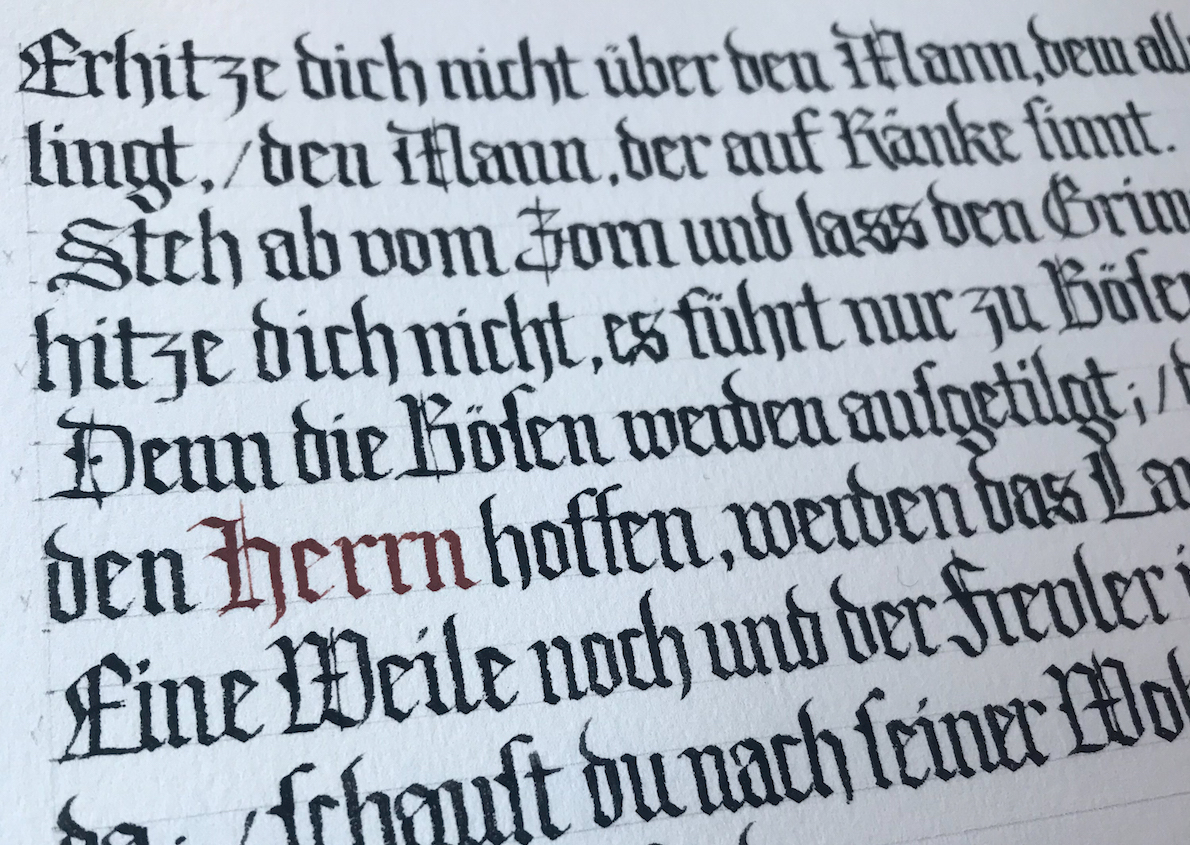 Erhitze dich nicht über den Mann, dem all
lingt, / den Mann, der auf Ränke sinnt.
Steh ab vom Zorn und lass den Grim
hitze dich nicht, es führt nur zu Böse
Denn die Bösen werden ausgetilgt; /
den Herrn hoffen, werden das La
Eine Weile noch und der Frevler i
da; / schaust du nach seiner Woh